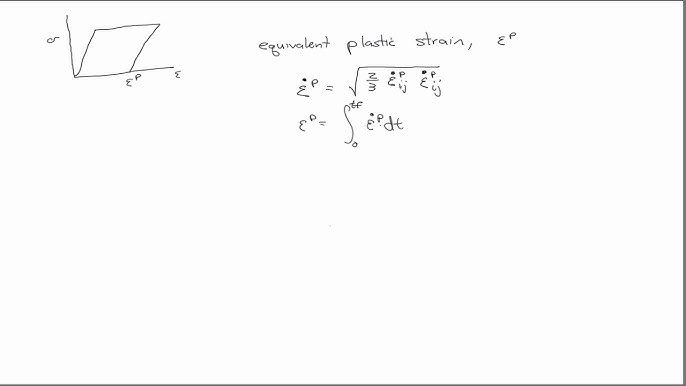 σ
ε^p
ε
equivalent plastic strain, ε^p
ε̇^p = √(2/3 ε̇^p_ij ε̇^p_ij)
ε^p = ∫_0^tf ε̇^p dt